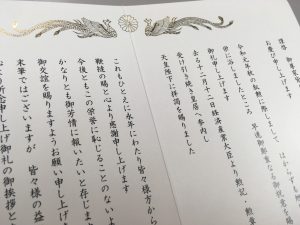 謹啓
お慶び申し上げます
令和元年秋の叙勲に際しまして
に浴しましたところ
御礼申し上げます
去る十二月十二日経済産業大臣より勲記・勲章
受け引き続き皇居へ参内し
天皇陛下に拝謁を賜りました
これもひとえに永年にわたり皆々様方から
鞭撻の賜と心より感謝申し上げます
今後ともこの栄誉に恥じることのないよ
かなりとも御芳情に報いたいと存じます
御交誼を賜りますようお願い申し上げ
末筆ではございますが 皆々様の益
心よりお祈り申し上げ御礼の御挨拶と